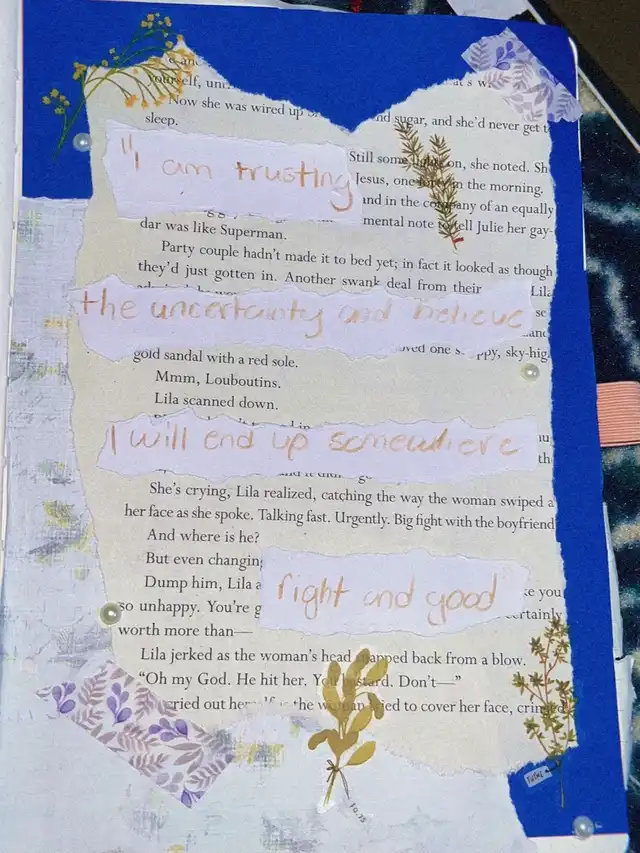 yourself,
Now she was wired up
and sugar, and she'd never get
sleep.
Still some on, she noted.
"I am trusting
Jesus, one in the morning.
and in the of an equally
mental note to tell Julie her gay-
dar was like Superman.
Party couple hadn't made it to bed yet; in fact it looked as though
they'd just gotten in. Another swank deal from their Lila
the uncertainty and believe
gold sandal with a red sole.
Mmm, Louboutins.
Lila scanned down.
I will end up somewhere
She's crying, Lila realized, catching the way the woman swiped a
her face as she spoke. Talking fast. Urgently. Big fight with the boyfriend
And where is he?
But even changing
Dump him, Lila
right and good
you
so unhappy. You're
worth more than—
Lila jerked as the woman's head snapped back from a blow.
"Oh my God. He hit her. You bastard. Don't—"
cried out the woman tried to cover her face,